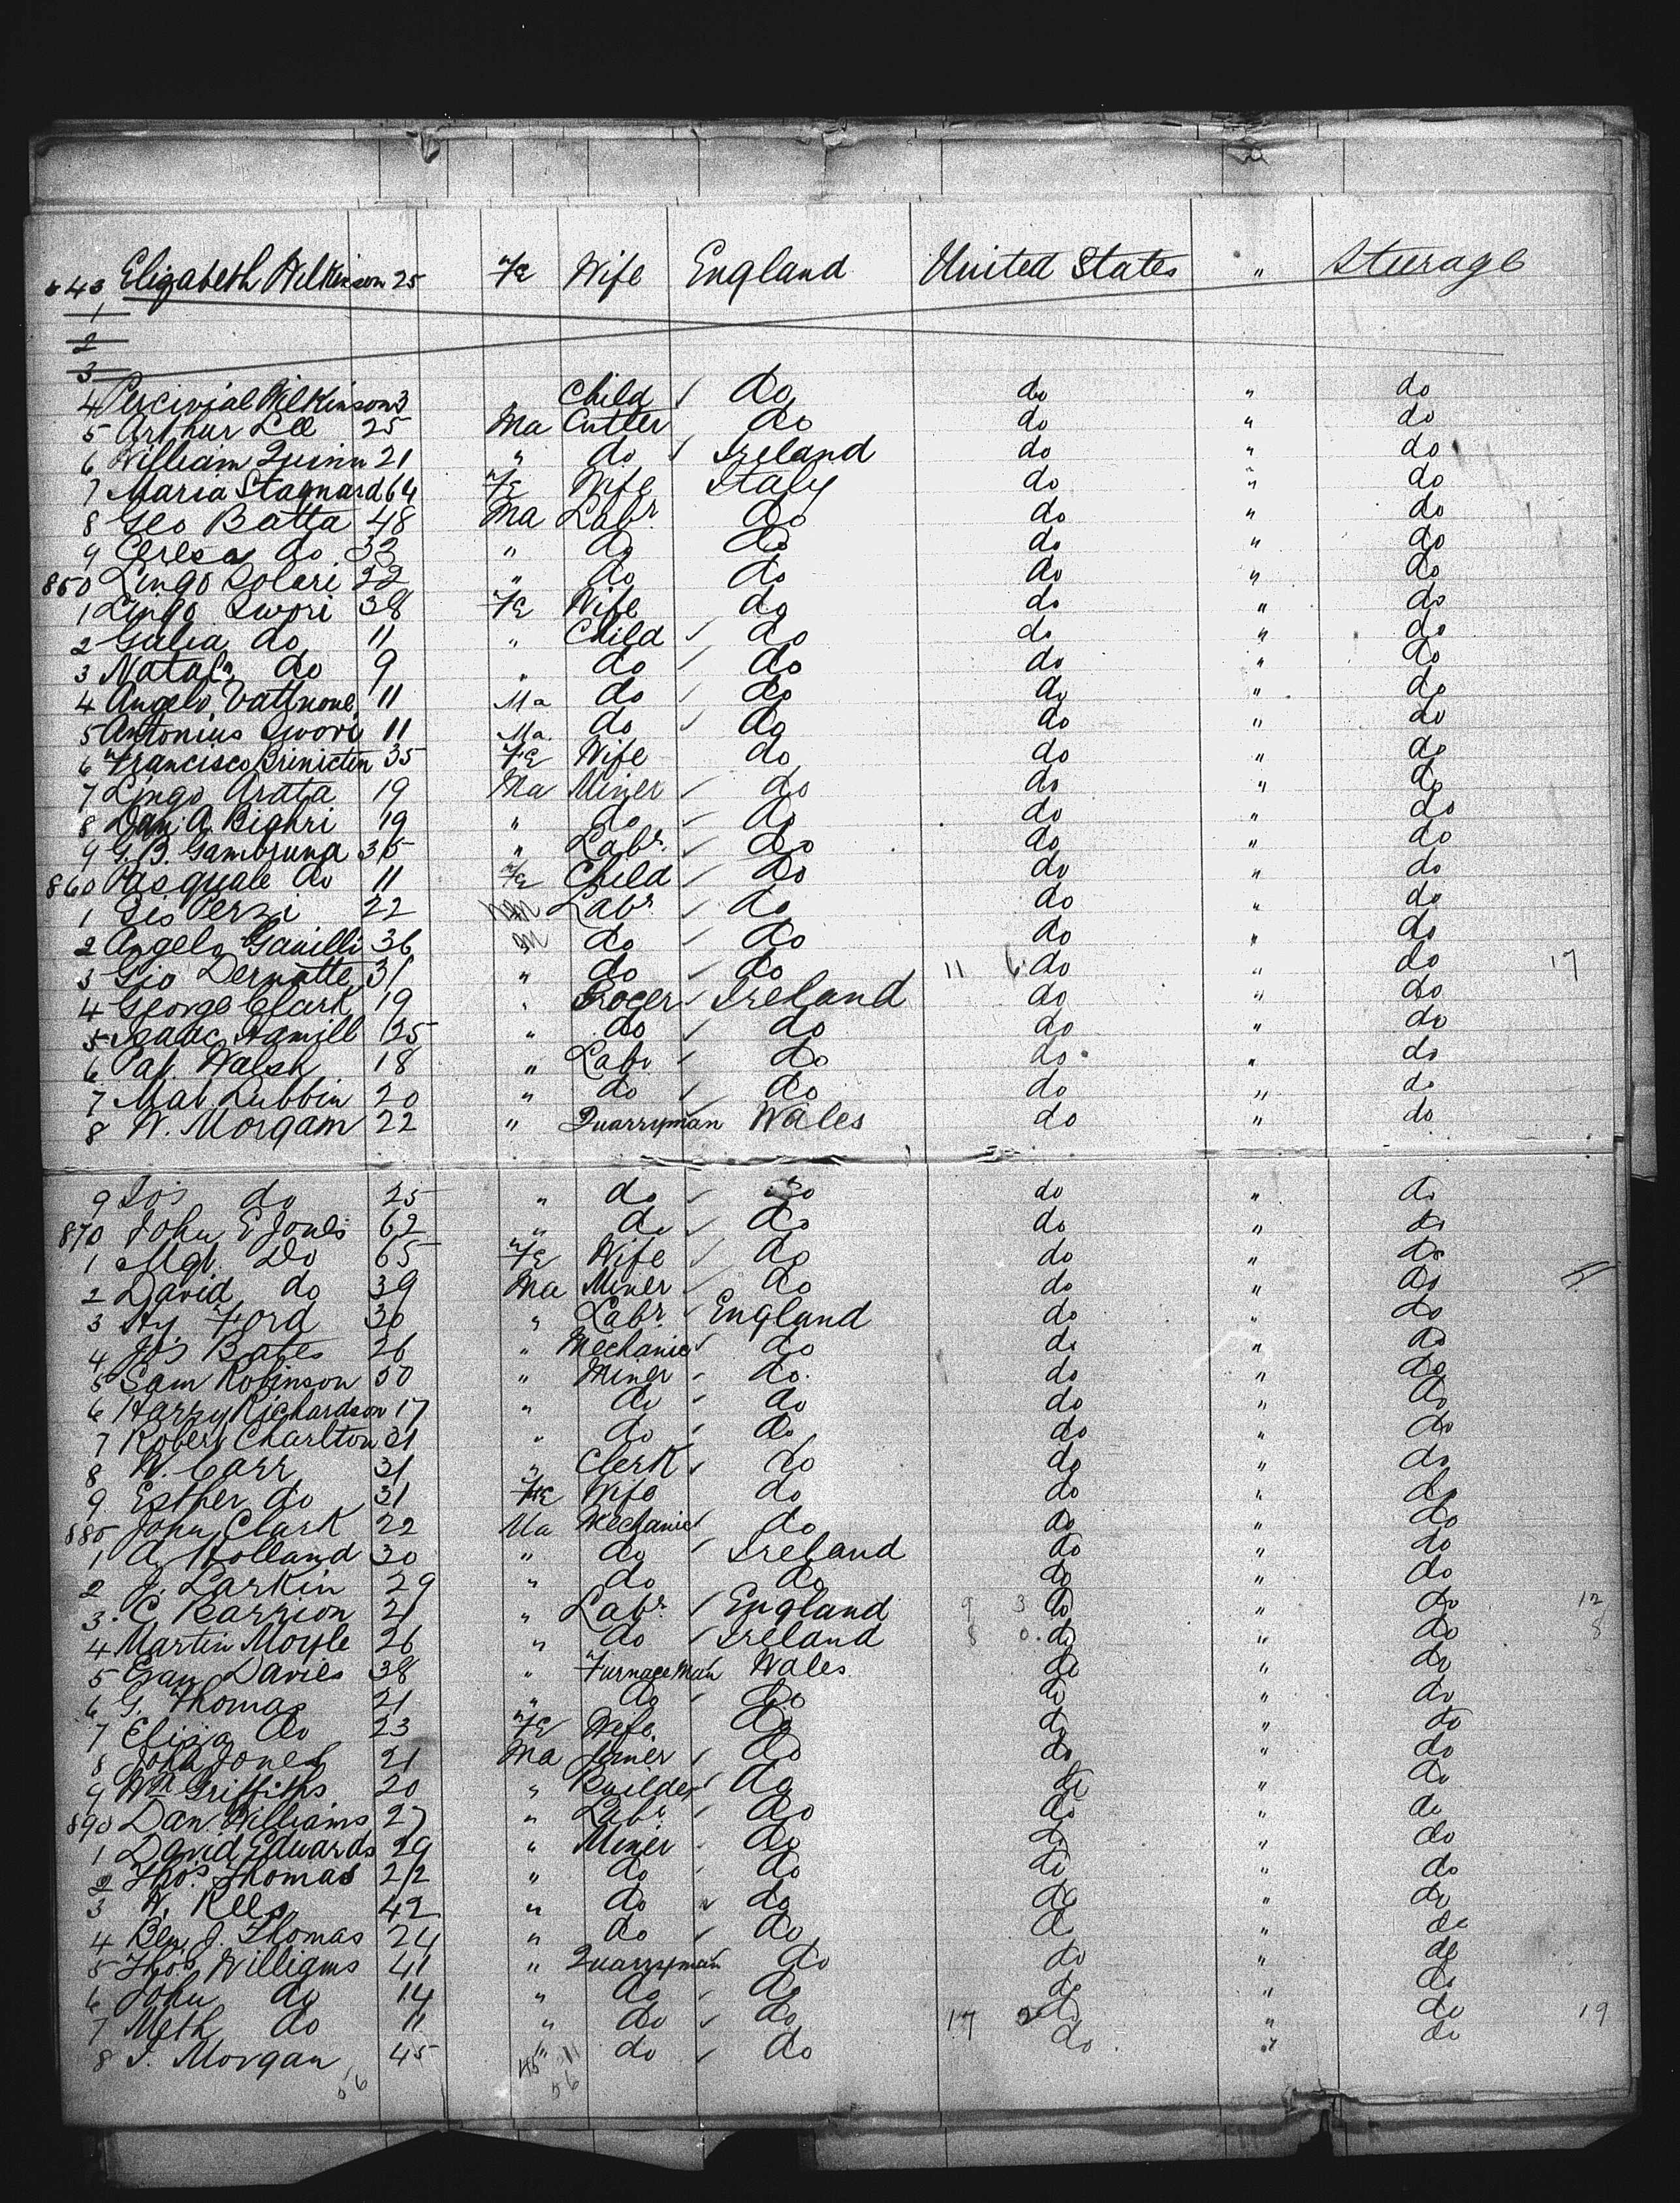 Elizabeth Wilkinson 25 Fe Wife England United States " Steerage
1
2
3
4 Percivial Wilkinson 3 Child do do " do
5 Arthur Lee 25 Ma Cutter do do " do
6 William Quinn 21 " do Ireland do " do
7 Maria Stagnard 64 Fe Wife Italy do " do
8 Geo Batta 48 Ma Labr do do " do
9 Ceresa do 32 " do do do " do
850 Lingo Solari 22 " do do do " do
1 Lingo Swori 38 Fe Wife do do " do
2 Gulia do 11 " Child do do " do
3 do 9 " do do do " do
4 Angelo 11 Ma do do do " do
5 Antonius Swori 11 Ma. do do do " do
6 Francisco 35 Fe Wife do do " do
7 Lingo Arata 19 Ma Miner do do " do
8 Dan. A. Bighri 19 " do do do " do
9 G. B. Gambruna 36 " Labr. do do " do
860 Pasquale do 11 Fe Child do do " do
1 22 Labr. do do " do
2 Angelo 36 m do do do " do
3 Gio 31 " do do 11 6 do " do 17
4 George Clark 19 " Grocer Ireland do " do
5 Isaac Hamill 25 " do do do " do
6 Pat. Walsh 18 " Labr do do " do
7 Mat. Dubbin 20 " do do do " do
8 W. Morgam 22 " Quarryman Wales do " do
9 Jos do 25 " do do do " do
870 John E Jones 62 " do do do " do
1 Mgt. Do 65 Fe Wife do do " do
2 David do 39 Ma Miner do do " do
3 Hy Ford 30 " Labr. England do " do
4 Jos Bates 26 " Mechanic do do " do
5 Sam Robinson 50 " Miner do do " do
6 Harry Richardson 17 " do do do " do
7 Robert Charlton 21 " do do do " do
8 W. Carr 31 " Clerk do do " do
9 Esther do 31 Fe Wife do do " do
880 John Clark 22 Ma Mechanic do do " do
1 A. Holland 30 " do Ireland do " do
2 J. Larkin 29 " do do do " do
3 C. Barrion 21 " Labr. England 9 3 do " do 12
4 Martin Moyle 26 " do Ireland 8 0 do " do 8
5 Evan Davies 38 " Furnaceman Wales do " do
6 G. Thomas 21 " do do do " do
7 Eliza do 23 Fe Wife do do " do
8 John Jones 21 Ma do do " do
9 Wm Griffiths 20 " Builder do do " do
890 Dan. Williams 27 " Labr do do " do
1 David Edwards 29 " Miner do do " do
2 Thos. Thomas 22 " do do do " do
3 W. Rees 42 " do do do " do
4 Ben. J. Thomas 24 " do do do " do
5 Thos. Williams 41 " Quarryman do do " do
6 John do 14 " do do do " do
7 Meth do 11 " do do 17 2 do " do 19
8 J. Morgan 45 " do do do " do
56 45 11
56